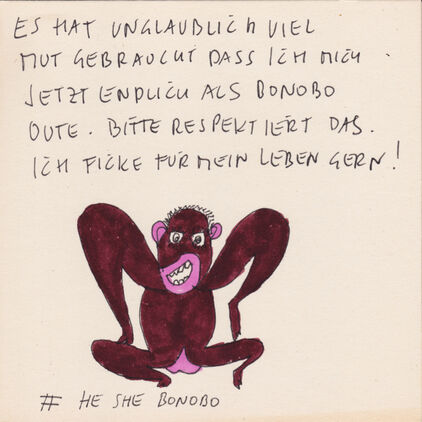 ES HAT UNGLAUBLICH VIEL
MUT GEBRAUCHT DASS ICH MICH
JETZT ENDLICH ALS BONOBO
OUTE. BITTE RESPEKTIERT DAS.
ICH FICKE FÜR MEIN LEBEN GERN!
# HE SHE BONOBO